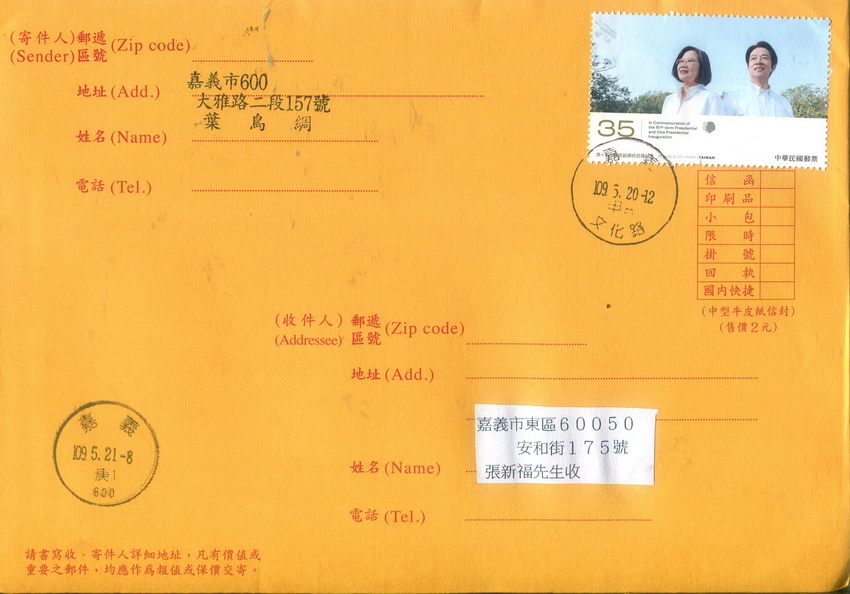 (寄件人) 郵遞區號 (Zip code)
(Sender)
嘉義市600
地址 (Add.)
大雅路二段157號
葉 鳥 綢
姓名 (Name)
電話 (Tel.)
35
In Commemoration of
the 15th-term Presidential
and Vice Presidential
Inauguration
(TAIWAN)
中華民國郵票
嘉 義
109.5.20-12
文化路
信函
印刷品
小包
限時
掛號
回執
國內快捷
(中型牛皮紙信封)
(售價2元)
(收件人) 郵遞區號 (Zip code)
(Addressee)
地址 (Add.)
嘉義市東區60050
安和街175號
姓名 (Name)
張新福先生收
電話 (Tel.)
嘉 義
109.5.21-8
庚1
600
請書寫收、寄件人詳細地址,凡有價值或
重要之郵件,均應作為報值或保價交寄。